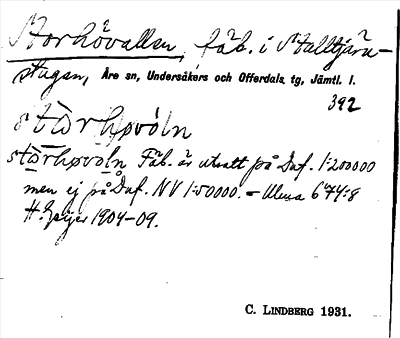 Storhövallen, fäb. i Stalltjära-
stugan, Åre sn, Undersåkers och Offerdals tg, Jämtl. l.
392
stɷ̀rhøvóln
stɷ̄rhøvoln Fäb. är utsatt på Duf. 1:200000
men ej på Duf. NV 1:50000. =
H. Geijer 1904-09.
C. LINDBERG 1931.